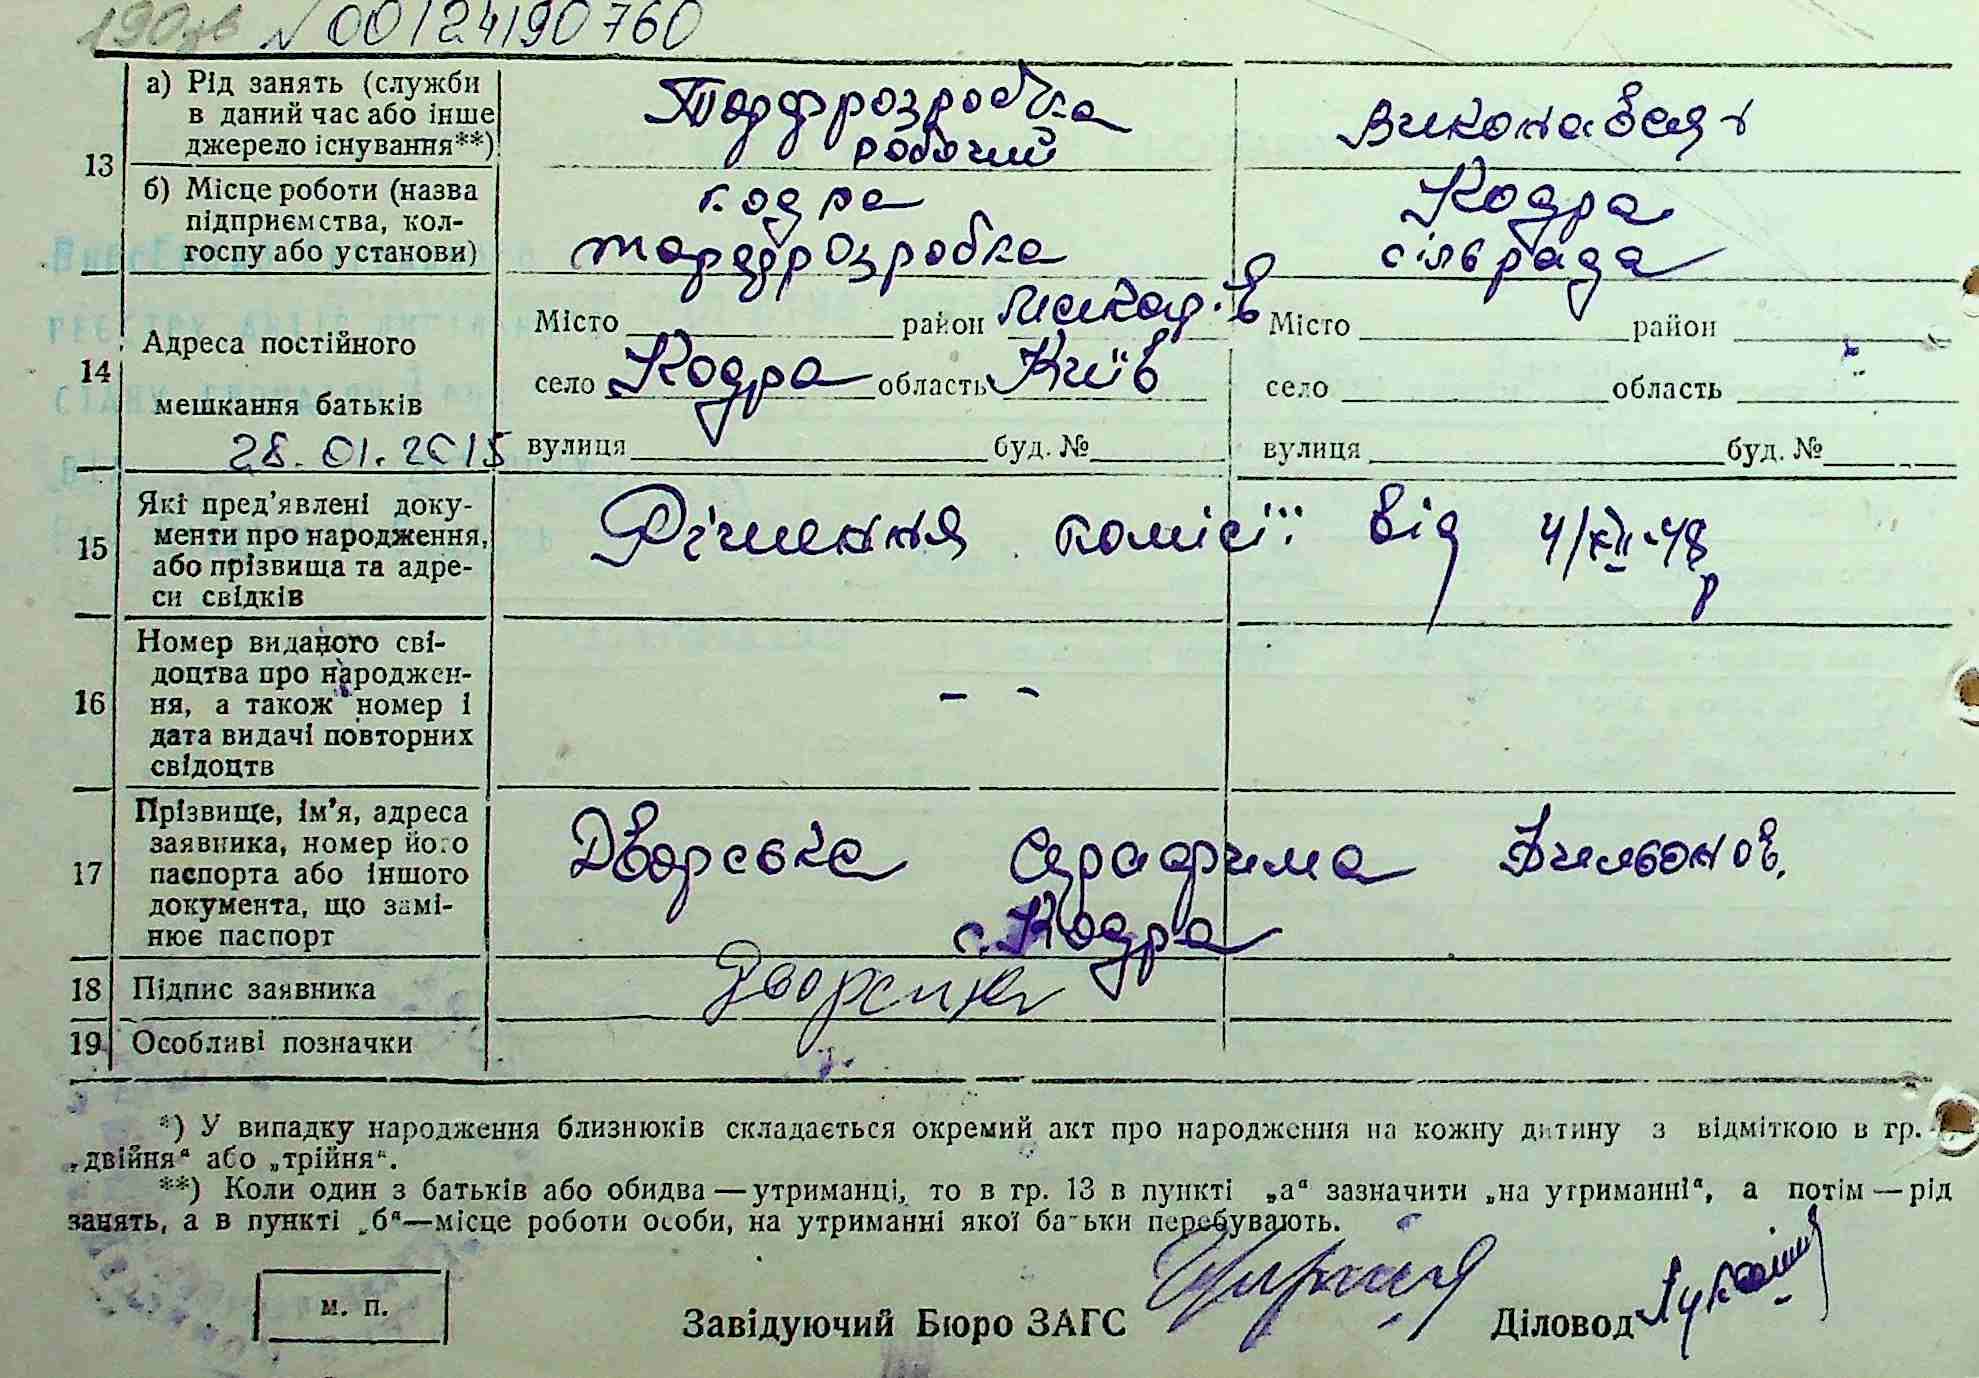 N 00124190760
а) Рід занять (служби Торфрозробка
в даний час або інше Виконавеця
джерело існування**) робочий
13
б) Місце роботи (назва Кодра Кодра
підприємства, кол-
госпу або установи) торфрозробка сільрада
Місто район Макар.-в Місто район
Адреса постійного
14
село Кодра область Київ село область
мешкання батьків
28.01.2015 вулиця буд. № вулиця буд. №
Які пред’явлені доку-
менти про народження, Рішення комісії від 4/XII-48 р
15
або прізвища та адре-
си свідків
Номер виданого сві-
доцтва про народжен-
16 ня, а також номер і - -
дата видачі повторних
свідоцтв
Прізвище, ім’я, адреса
заявника, номер його Дворська Серафима
17 паспорта або іншого
документа, що замі-
нює паспорт с. Кодра
18 Підпис заявника Дворська
19 Особливі позначки
*) У випадку народження близнюків складається окремий акт про народження на кожну дитину з відміткою в гр.
„двійня“ або „трійня“.
**) Коли один з батьків або обидва — утриманці, то в гр. 13 в пункті „а“ зазначити „на утриманні“, а потім — рід
занять, а в пункті „б“—місце роботи особи, на утриманні якої батьки перебувають.
м. п.
Завідуючий Бюро ЗАГС Діловод